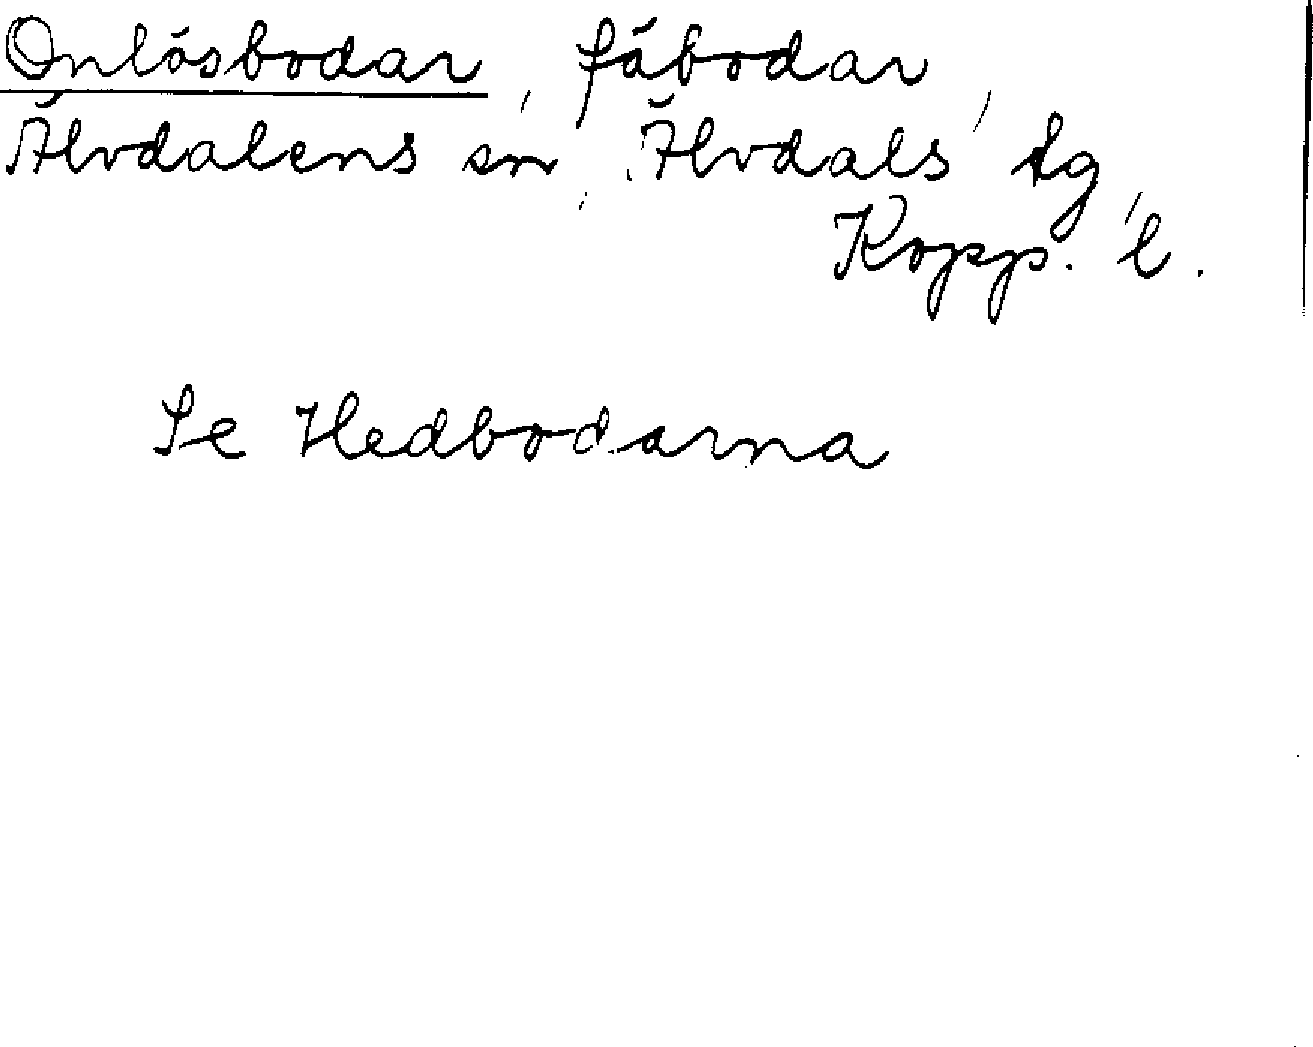 Onlåsbodar, fäbodar,
Älvdalens sn, Älvdals tg,
Kopp. l.
Se Hedbodarna